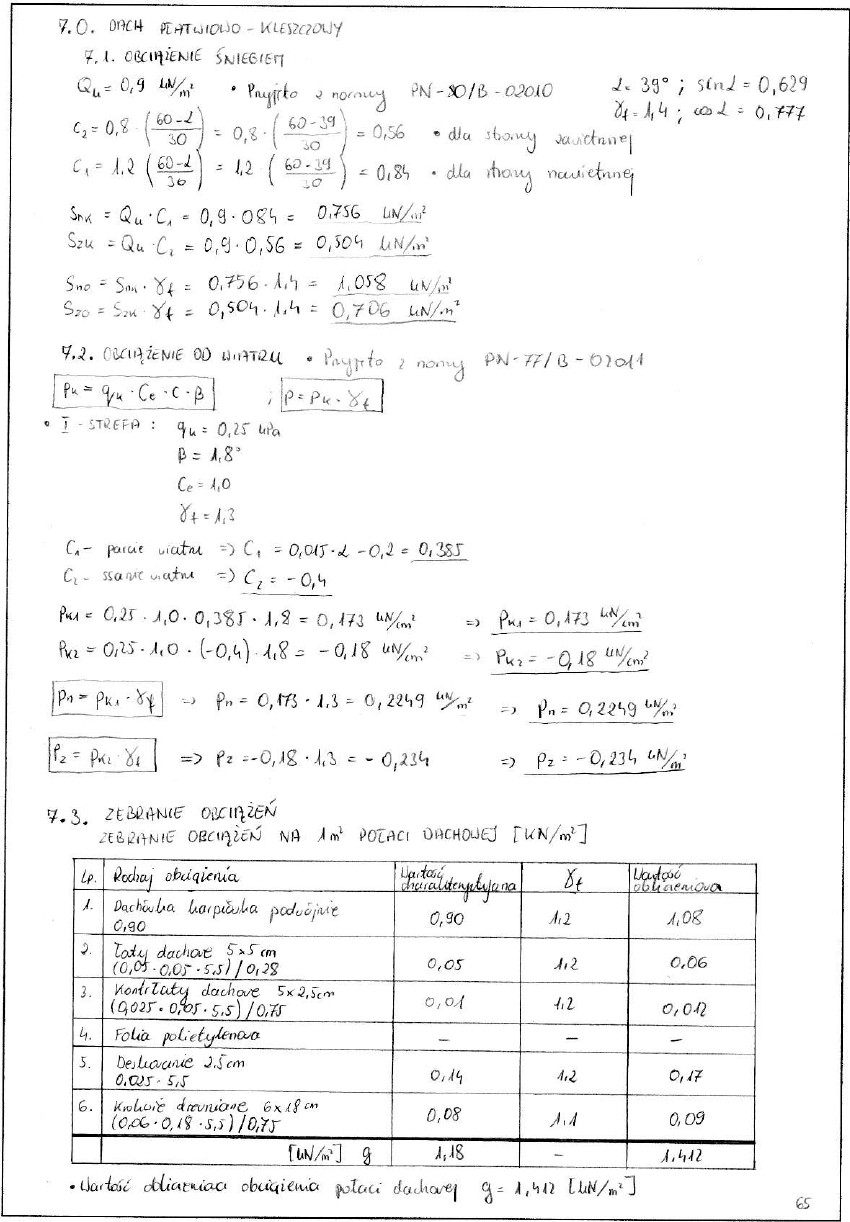 7.0. DACH PŁATWIOWO - KLESZCZOWY
7.1. OBCIĄŻENIE ŚNIEGIEM
Qk = 0,9 kN/m² • Przyjęto z normy PN-80/B-02010
α = 39° ; sin α = 0,629
γf = 1,4 ; cos α = 0,777
C2 = 0,8 · (60-α / 30) = 0,8 · (60-39 / 30) = 0,56 • dla strony zawietrznej
C1 = 1,2 (60-α / 30) = 1,2 · (60-39 / 30) = 0,84 • dla strony nawietrznej
Snk = Qk · C1 = 0,9 · 084 = 0,756 kN/m²
Szk = Qk · C2 = 0,9 · 0,56 = 0,504 kN/m²
Sno = Snk · γf = 0,756 · 1,4 = 1,058 kN/m²
Szo = Szk · γf = 0,504 · 1,4 = 0,706 kN/m²
7.2. OBCIĄŻENIE OD WIATRU • Przyjęto z normy PN-77/B-02011
pk = qk · Ce · C · β ; p = pk · γf
• I - STREFA : qk = 0,25 kPa
β = 1,8°
Ce = 1,0
γf = 1,3
C1 - parcie wiatru => C1 = 0,015 · α - 0,2 = 0,385
C2 - ssanie wiatru => C2 = -0,4
pk1 = 0,25 · 1,0 · 0,385 · 1,8 = 0,173 kN/m² => pk1 = 0,173 kN/m²
pk2 = 0,25 · 1,0 · (-0,4) · 1,8 = -0,18 kN/m² => pk2 = -0,18 kN/m²
pn = pk1 · γf => pn = 0,173 · 1,3 = 0,2249 kN/m² => pn = 0,2249 kN/m²
pz = pk2 · γf => pz = -0,18 · 1,3 = -0,234 => pz = -0,234 kN/m²
7.3. ZEBRANIE OBCIĄŻEŃ
ZEBRANIE OBCIĄŻEŃ NA 1m² POŁACI DACHOWEJ [KN/m²]
Lp. Rodzaj obciążenia Wartość charakterystyczna γf Wartość obliczeniowa
1. Dachówka karpiówka podwójnie 0,90 1,2 1,08
0,90
2. Łaty dachowe 5x5cm 0,05 1,2 0,06
(0,05 · 0,05 · 5,5)/0,28
3. Kontrłaty dachowe 5x2,5cm 0,01 1,2 0,012
(0,025 · 0,05 · 5,5)/0,75
4. Folia polietylenowa - - -
5. Deskowanie 2,5cm 0,14 1,2 0,17
0,025 · 5,5
6. Krokwie drewniane 6x18cm 0,08 1,1 0,09
(0,06 · 0,18 · 5,5)/0,75
[kN/m²] g 1,18 - 1,412
• Wartość obliczeniowa obciążenia połaci dachowej g = 1,412 [kN/m²]
65